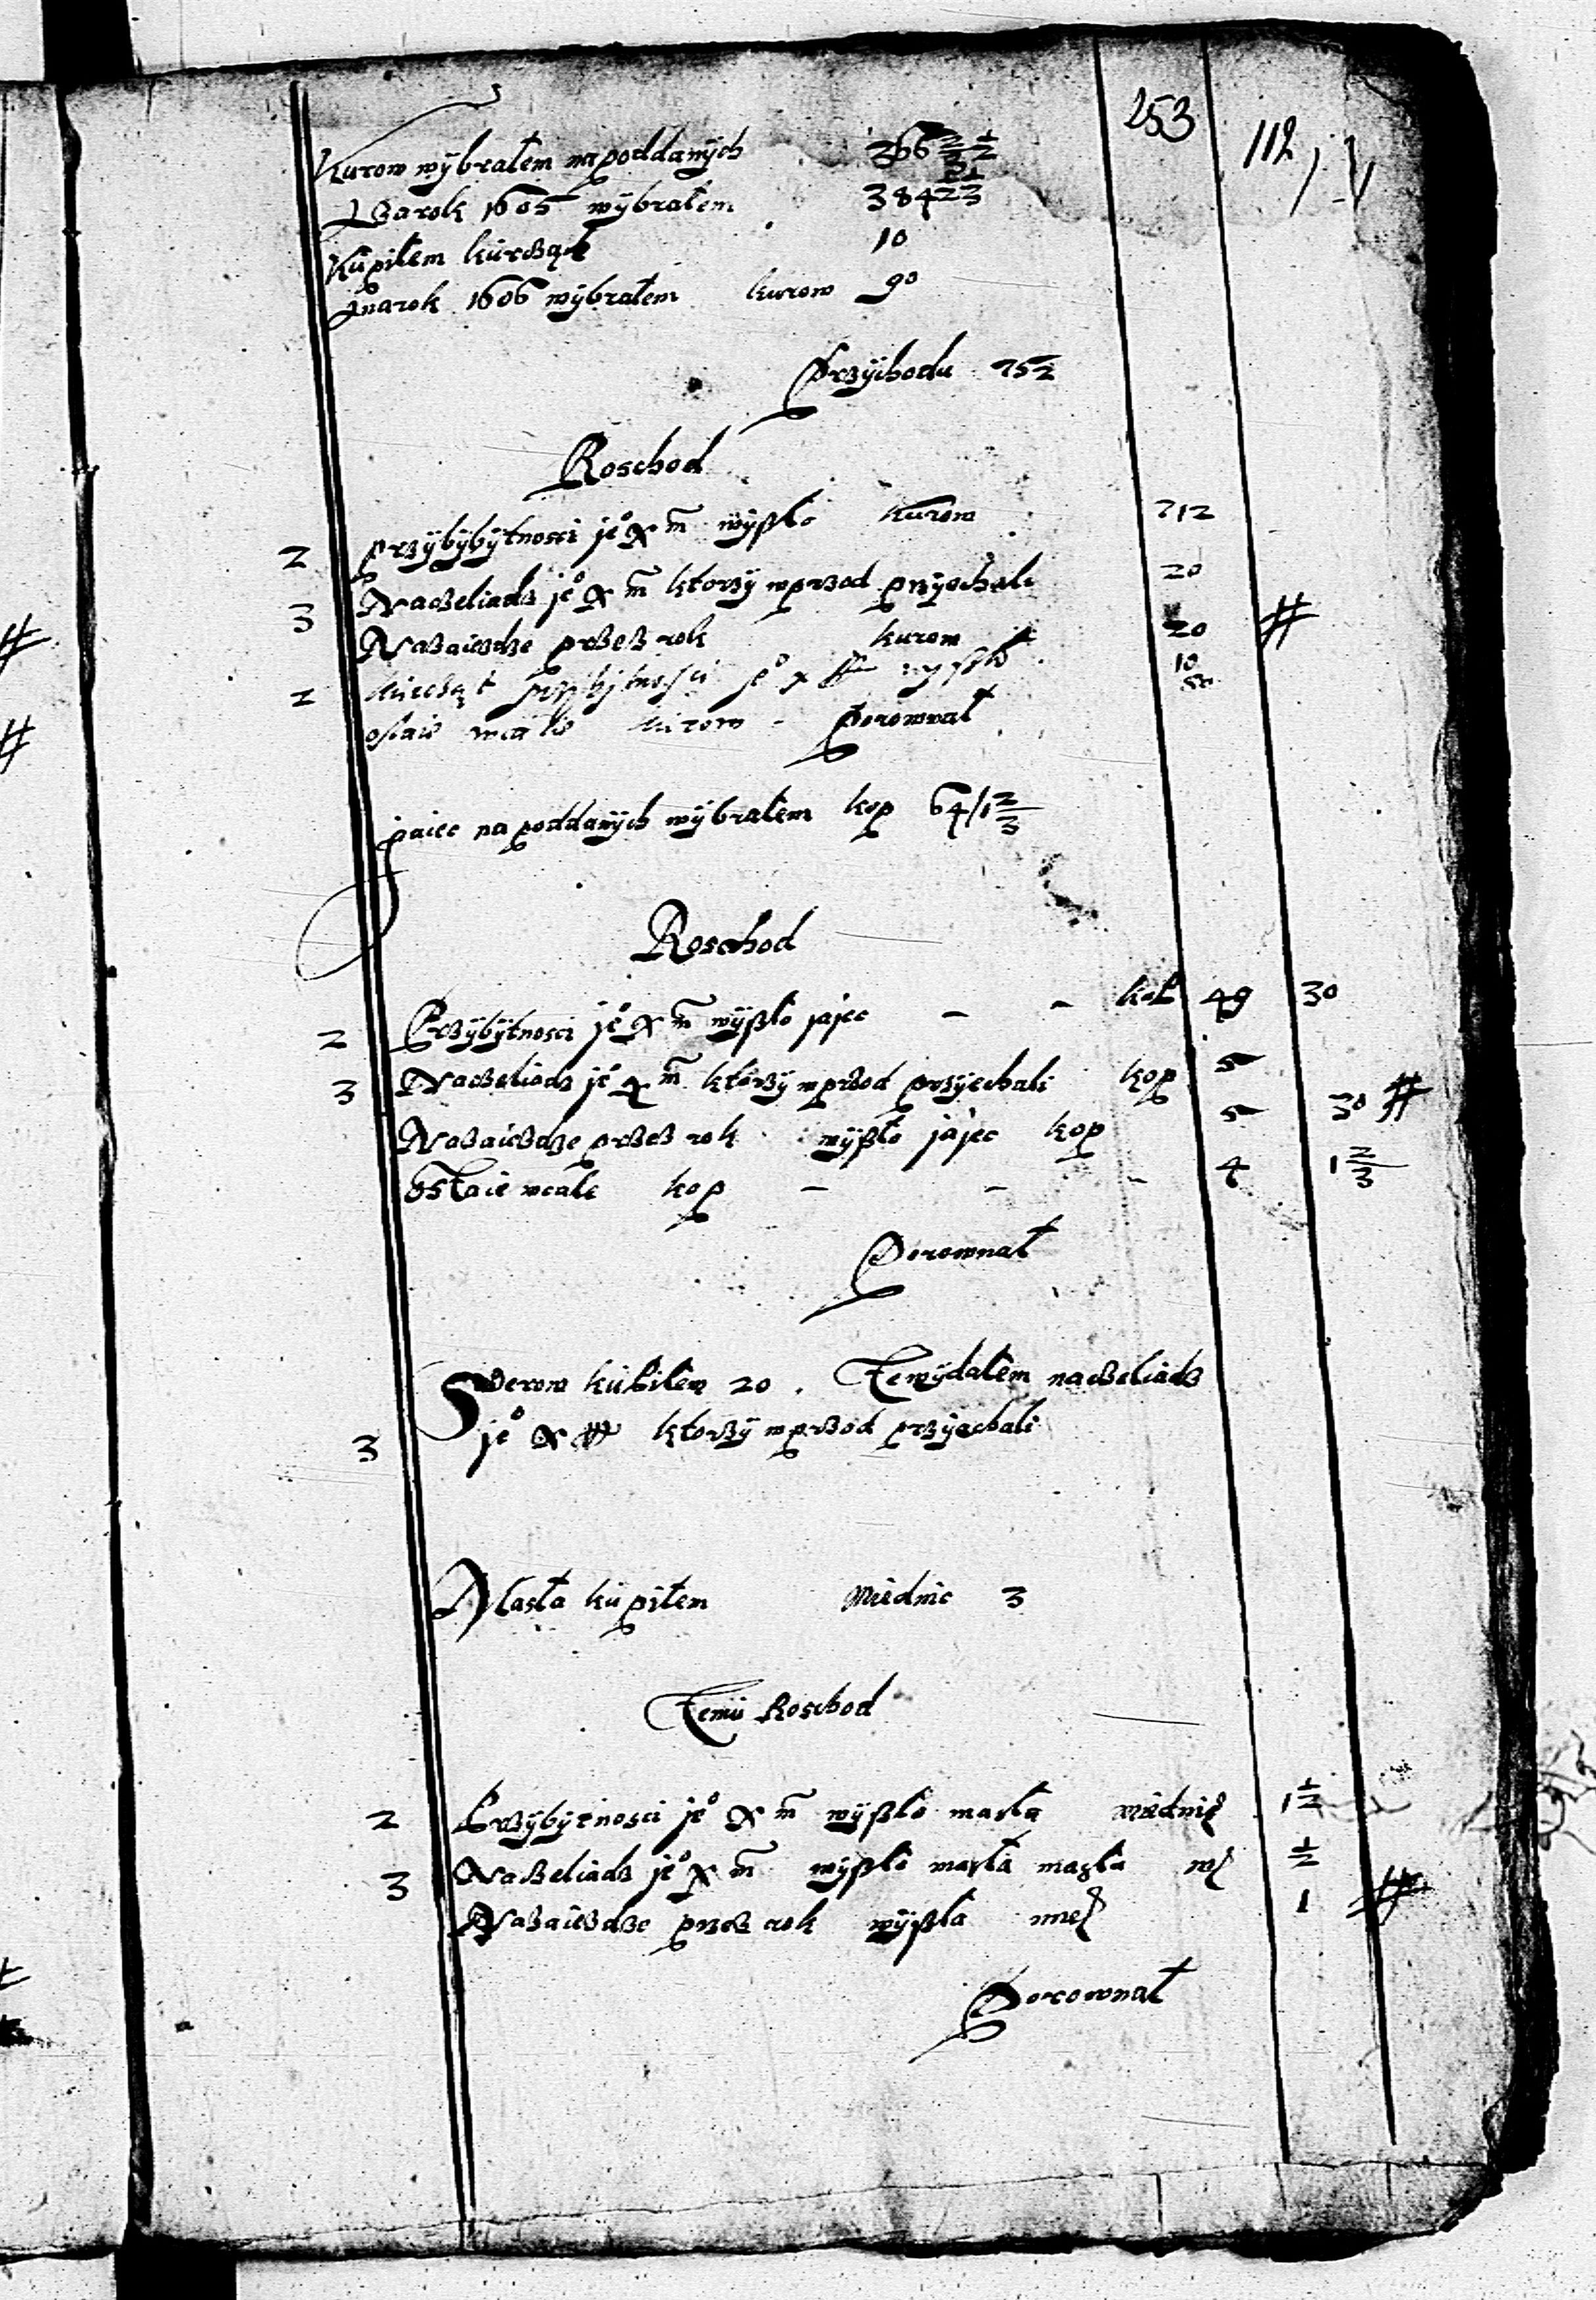 253
112
Kurow wÿbrałem na poddanÿch 366 2/3 1/2
Za rok 1605 wÿbrałem 384
Kupiłem kurcząt 10
Zna rok 1606 wÿbrałem kurow 90
Przÿchodu 752
Roschod
2 przÿbÿbÿtnosci je° x m wÿszło kurow 712
3 Naczeliadz je° x m ktorzÿ wprzod przÿechali 20
Nazaiezdze przez rok kurow 20 #
2 kurcząt przÿbÿtnosci je° x m wyszło 10
ostaie wcale kurow Porownał
jaiec na poddanÿch wÿbrałem kop 64/1 2/3
Roschod
2 Przÿbÿtnosci je° x m wÿszło jajec – – kop 49 30
3 Naczeliadz je° x m ktorzÿ wprzod przÿechali kop 5
Nazaiezdze przez rok wÿszło jajec kop 5 30 #
Ostaie wcale kop – – – 4 1 2/3
Porownał
Serow kupiłem 20. Te wÿdałem naczeliadz
3 je° x m ktorzÿ wprzod przÿechali
Masła kupiłem Miednic 3
Temu Roschod
2 Przÿbÿtnosci je° x m wÿszło masła miednic 1 1/2
3 Naczeliadz je° x m wÿszło masła masła m 1/2
Nazaiezdze przez rok wÿszła mie 1 #
Porownał